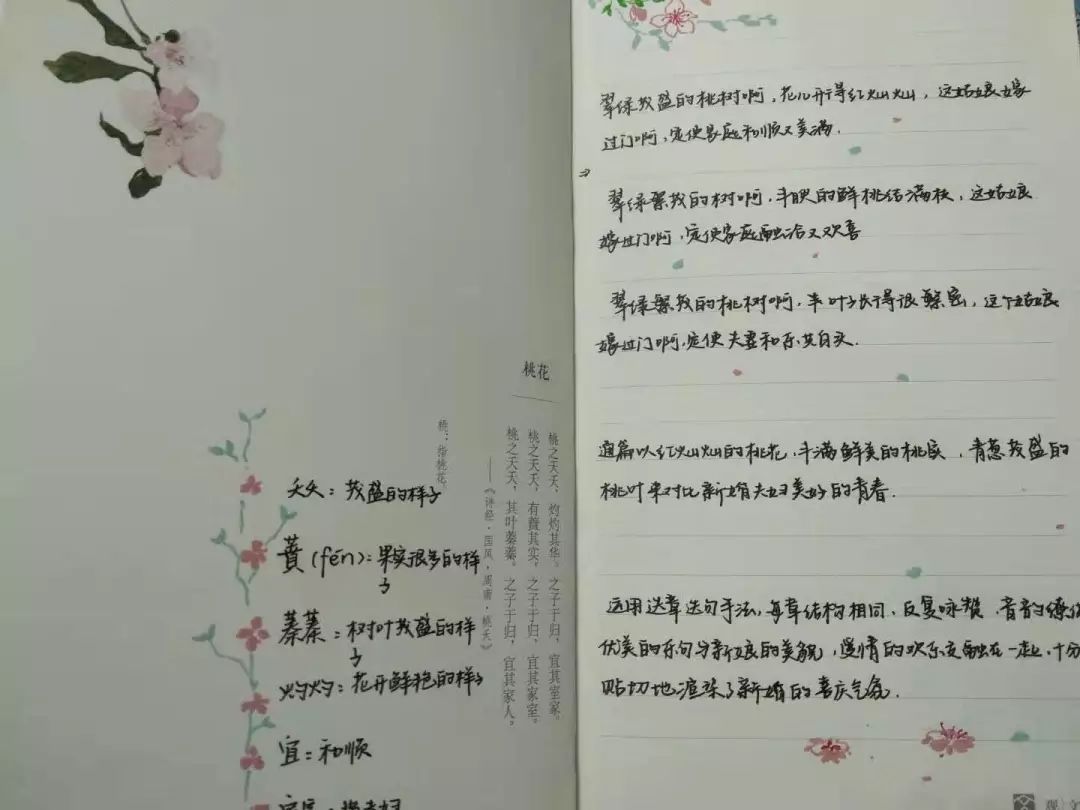 桃花
桃之夭夭，灼灼其华。之子于归，宜其室家。
桃之夭夭，有蕡其实。之子于归，宜其家室。
桃之夭夭，其叶蓁蓁。之子于归，宜其家人。
——《诗经·国风·周南·桃夭》
桃：指桃花。
夭夭：茂盛的样子
蕡(fén)：果实很多的样
子
蓁蓁：树叶茂盛的样
子
灼灼：花开鲜艳的样子
宜：和顺
翠绿茂盛的桃树啊，花儿开得红灿灿，这姑娘嫁
过门啊，定使家庭和顺又美满．
翠绿繁茂的树啊，丰肥的鲜桃结满枝，这姑娘
嫁过门啊，定使家庭融洽又欢喜
翠绿繁茂的桃树啊，叶子长得很繁密，这个姑娘
嫁过门啊，定使夫妻和乐共白头．
通篇以红灿灿的桃花，丰满鲜美的桃实，青葱茂盛的
桃叶来对比新婚夫妇美好的青春．
运用迭章迭句手法，每章结构相同，反复咏赞，音韵缭
优美的乐句与新娘的美貌，爱情的欢乐交融在一起，十分
贴切地渲染了新婚的喜庆气氛．